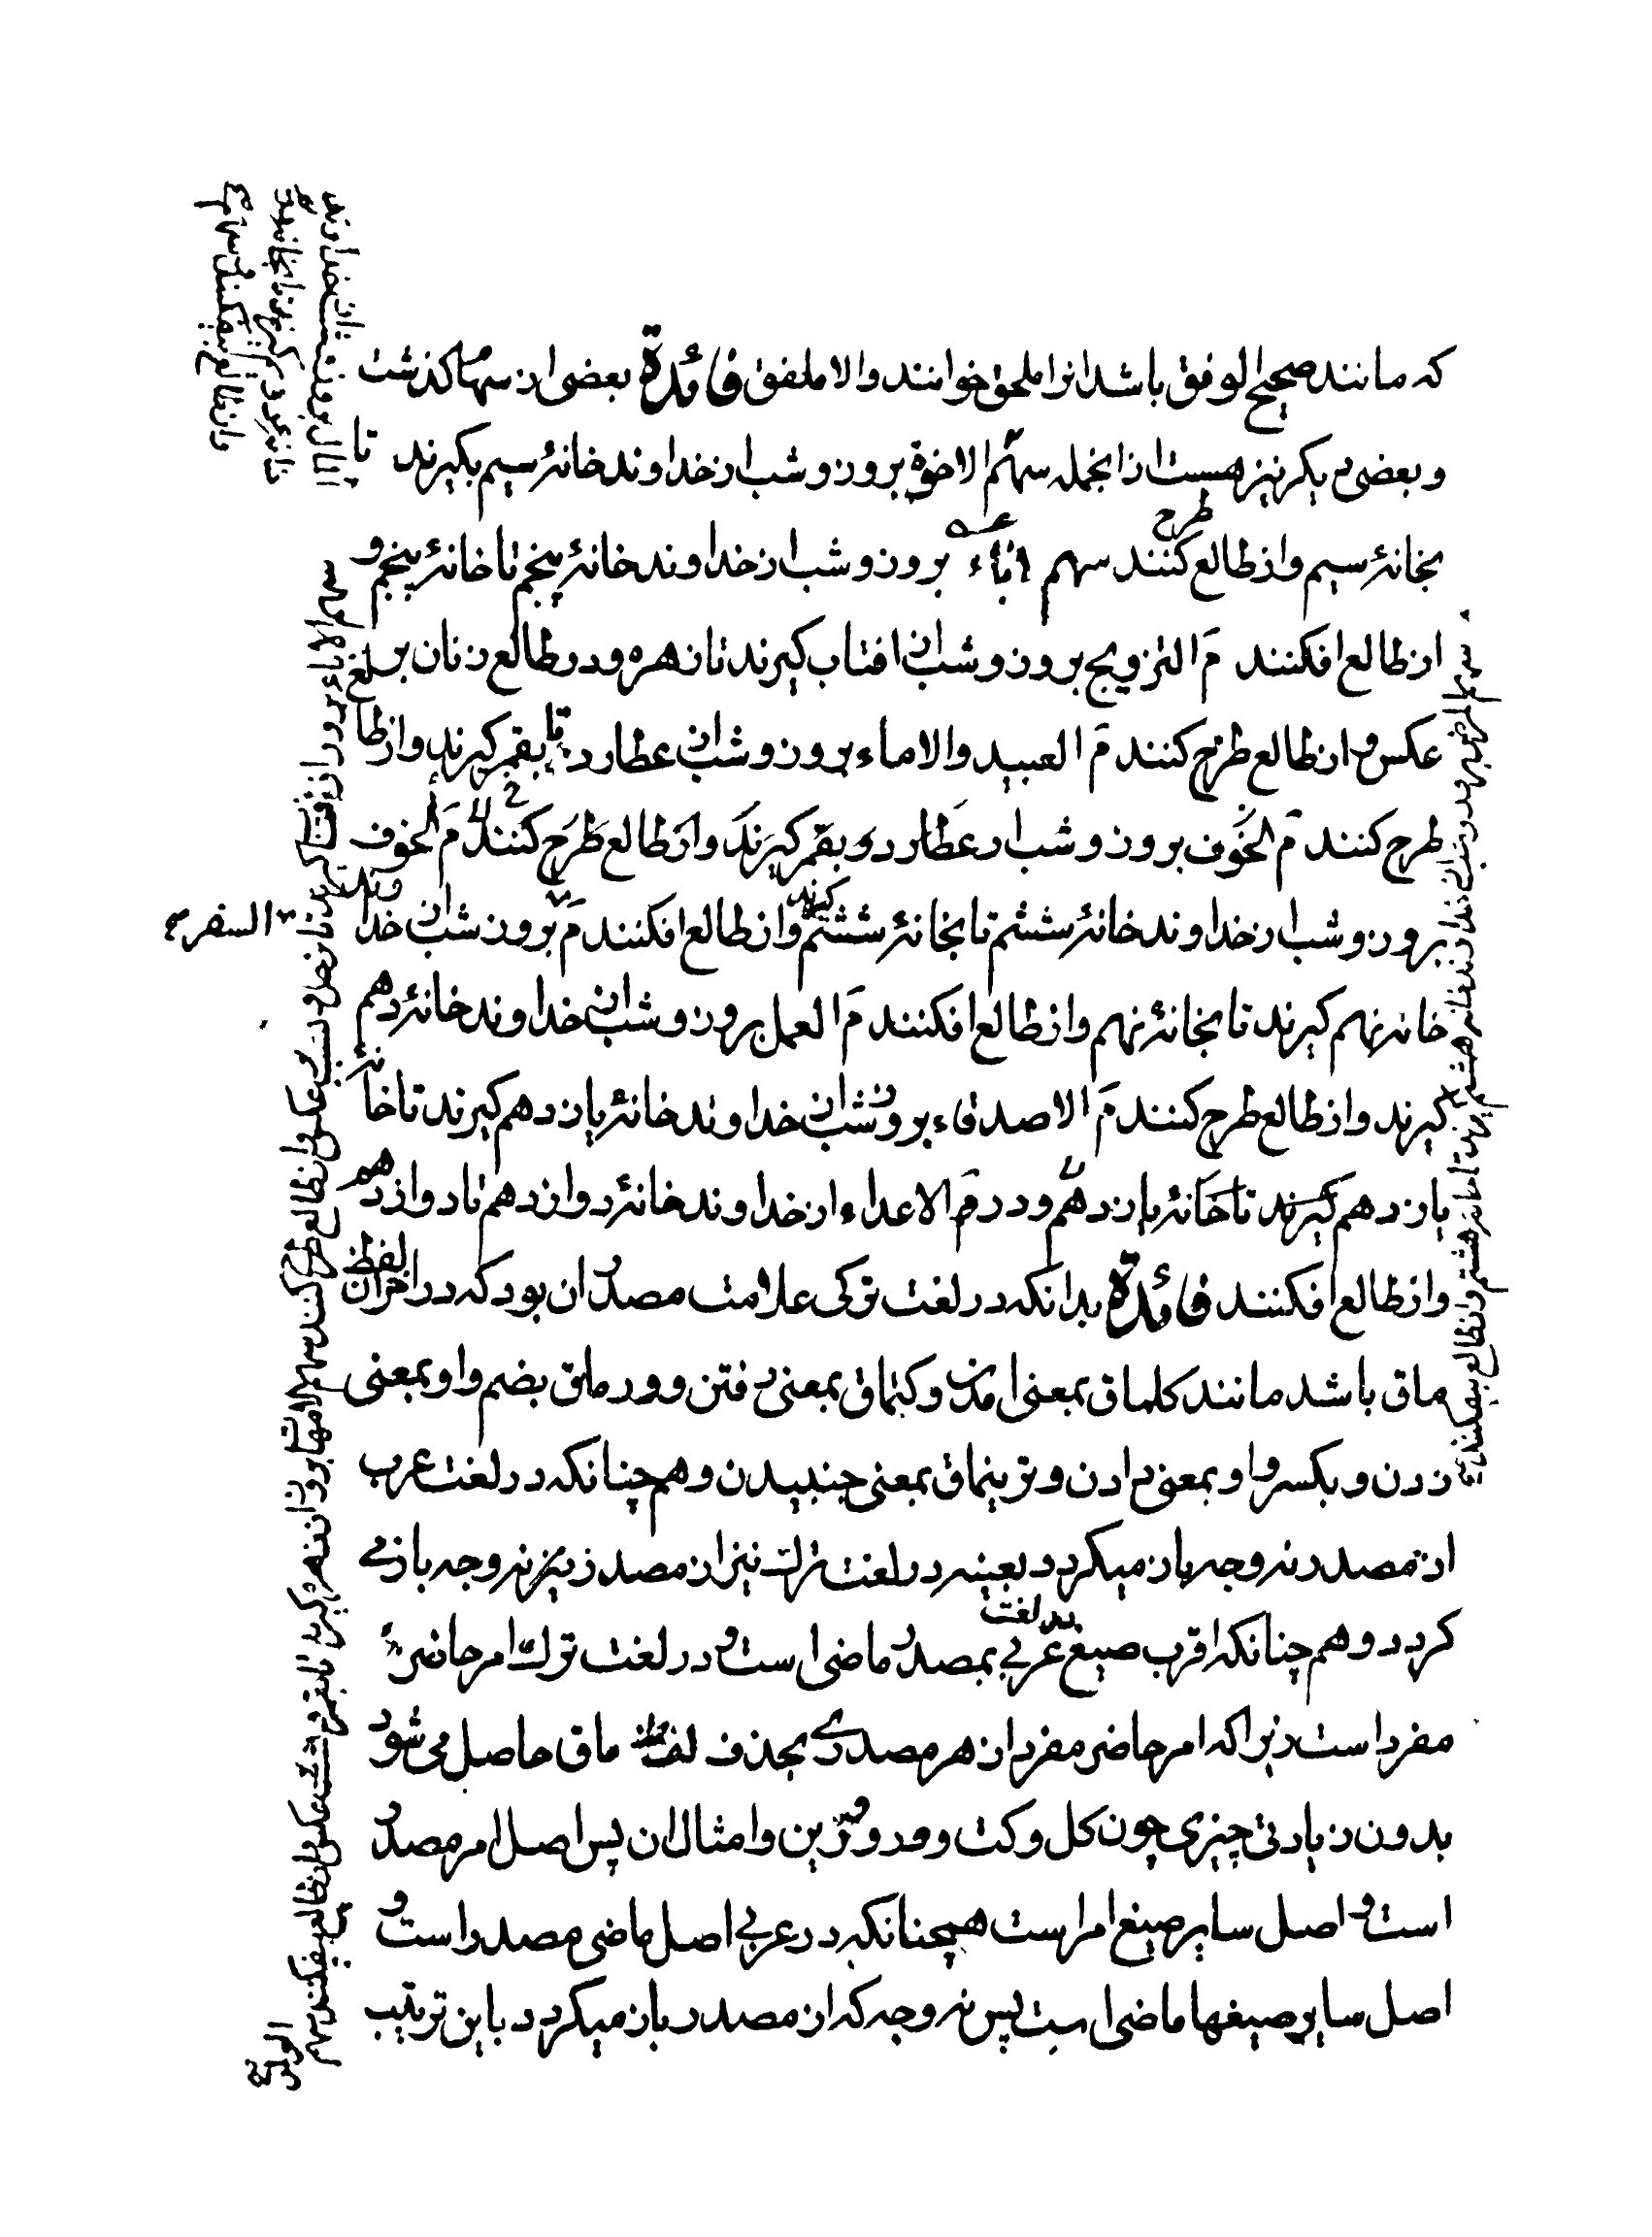 که مانند صحیح الوفق باشد انرا ملحق خوانند والا ملفق فائدة بعضی از سهما کذشت
و بعضی دیکر نیز هست از انجمله سهم الاخوة بروز و شب از خداوند خانهٔ سیم بکیرند تا
بخانهٔ سیم و از طالع طرح کنند سهم اباء بروز و شب از خداوند خانهٔ پنجم تا خانهٔ پنجم و
از طالع افکنند مَ التزویج بروز و شب از افتاب کیرند تا زهره و در طالع زنان بر
عکس و از طالع طرح کنند مَ العبید والاماء بروز و شب از عطارد تا بقمر کیرند و از طالع
طرح کنند مَ الخوف بروز و شب از عطارد و بقمر کیرند و از طالع طرح کنند مَ الخوف
بروز و شب از خداوند خانهٔ ششم تا بخانهٔ ششم کیرند و از طالع افکنند مَ السفر بروز شب از خداوند
خانه نهم کیرند تا بخانهٔ نهم و از طالع افکنند مَ العمل بروز و شب از خداوند خانهٔ دهم
کیرند و از طالع طرح کنند مَ الاصدقاء بروز و شب از خداوند خانهٔ یازدهم کیرند تا خانهٔ
یازدهم کیرند تا خانهٔ یازدهم و در مَ الاعداء از خداوند خانهٔ دوازدهم تا دوازدهم
و از طالع افکنند فائدة بدانکه در لغت ترکی علامت مصدر ان بود که در اخر ان لفظ
ماق باشد مانند کلماق بمعنی امدن و کتماق بمعنی رفتن و ورماق بضم واو بمعنی
زدن و بکسر واو بمعنی دادن و ترپنماق بمعنی جنبیدن و هم چنانکه در لغت عرب
از مصدر نه وجه باز میکردد بعینه در لغت ترک نیز از مصدر نیز نه وجه باز می
کردد و هم چنانکه اقرب صیغ در لغت عربی بمصدر ماضی است و در لغت ترک امر حاضر
مفرد است زیرا که امر حاضر مفرد از هر مصدری بحذف لفظ ماق حاصل می شود
بدون زیادتی چیزی چون کل و کت و ور و ترپن و امثال ان پس اصل امر مصدر
است و اصل سایر صیغ امر است همچنانکه در عربی اصل ماضی مصدر است و
اصل سایر صیغها ماضی است پس نه وجه که از مصدر باز میکردد باین ترتیب
سهم الاباء بروز از افتاب کیرند تا زحل و بشب بر عکس و از طالع طرح کنند سهم الامهات بروز از زهره کیرند تا بقمر و بشب عکس و از طالع بیفکنند سهم
الولد
سهم المرض بروز و شب از خداوند خانه هشتم کیرند تا خانهٔ هشتم و از طالع بیفکنند